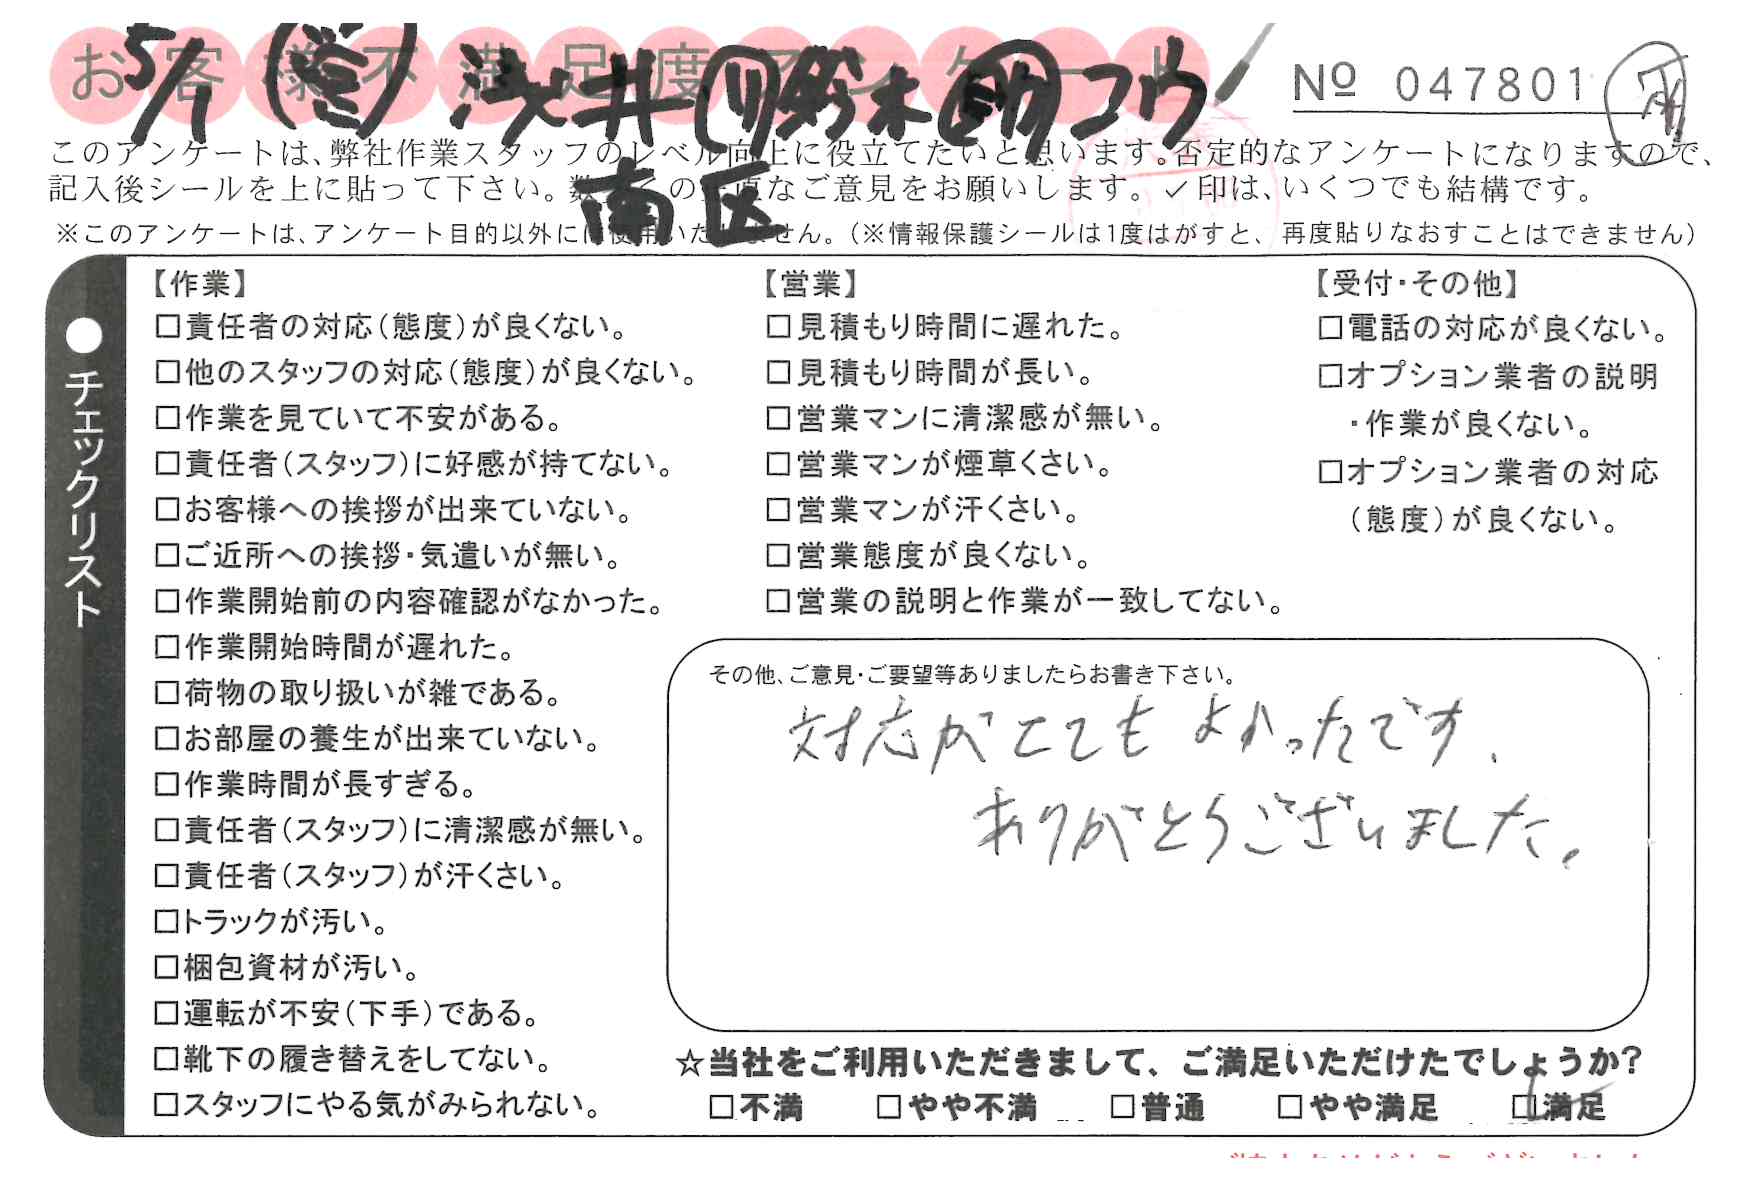 お客様不満足度アンケート
5/1 浅井 鈴木 コウ
南区
No 047801
このアンケートは、弊社作業スタッフのレベル向上に役立てたいと思います。否定的なアンケートになりますので、
記入後シールを上に貼って下さい。数多くの正直なご意見をお願いします。✓印は、いくつでも結構です。
※このアンケートは、アンケート目的以外には使用いたしません。(※情報保護シールは1度はがすと、再度貼りなおすことはできません)
●チェックリスト
【作業】
□責任者の対応(態度)が良くない。
□他のスタッフの対応(態度)が良くない。
□作業を見ていて不安がある。
□責任者(スタッフ)に好感が持てない。
□お客様への挨拶が出来ていない。
□ご近所への挨拶・気遣いが無い。
□作業開始前の内容確認がなかった。
□作業開始時間が遅れた。
□荷物の取り扱いが雑である。
□お部屋の養生が出来ていない。
□作業時間が長すぎる。
□責任者(スタッフ)に清潔感が無い。
□責任者(スタッフ)が汗くさい。
□トラックが汚い。
□梱包資材が汚い。
□運転が不安(下手)である。
□靴下の履き替えをしてない。
□スタッフにやる気がみられない。
【営業】
□見積もり時間に遅れた。
□見積もり時間が長い。
□営業マンに清潔感が無い。
□営業マンが煙草くさい。
□営業マンが汗くさい。
□営業態度が良くない。
□営業の説明と作業が一致してない。
【受付・その他】
□電話の対応が良くない。
□オプション業者の説明
・作業が良くない。
□オプション業者の対応
(態度)が良くない。
その他、ご意見・ご要望等ありましたらお書き下さい。
対応がとてもよかったです。
ありがとうございました。
☆当社をご利用いただきまして、ご満足いただけたでしょうか?
□不満 □やや不満 □普通 □やや満足 □満足